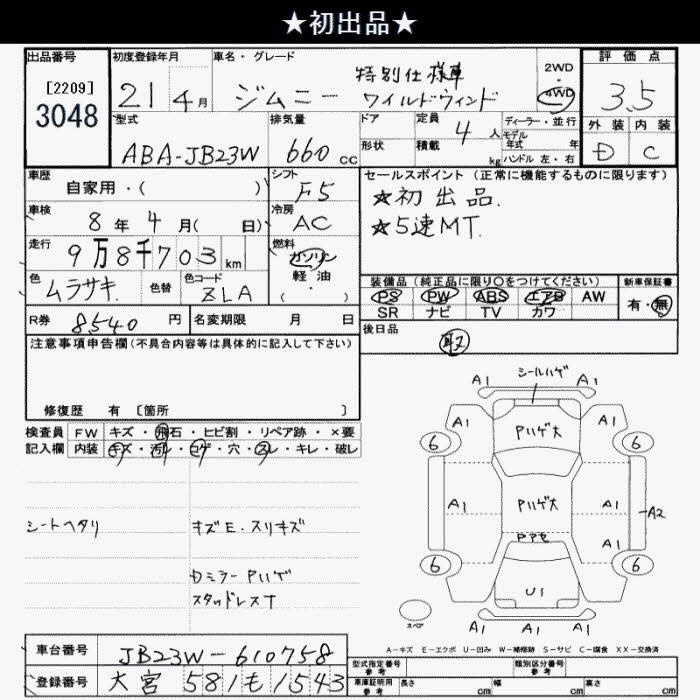 ★初出品★
出品番号
[2209]
3048
初度登録年月
21 4月
車名・グレード
特別仕様車
ジムニー ワイルドウィンド
2WD
・
4WD
評価点
3.5
外装 内装
D C
型式
ABA-JB23W
排気量
660 cc
ドア
形状
定員
4 人
積載
kg
ディーラー・並行
モデル
年式 年
ハンドル 左・右
車歴
自家用・( )
シフト
F5
車検
8年 4月( 日)
冷房
AC
走行
9万8千703 km
燃料
ガソリン
軽・油
・
( )
色
ムラサキ
色替
色コード
ZLA
R券
8540 円
名変期限 月 日
セールスポイント(正常に機能するものに限ります)
★初出品.
★5速MT.
装備品(純正品に限り○をつけてください)
新車保証書
PS PW ABS エアB AW
SR ナビ TV カワ
有・無
後日品
取
注意事項申告欄(不具合内容等は具体的に記入して下さい)
修復歴 有 〔箇所 〕
検査員 FW キズ・飛石・ヒビ割・リペア跡・×要
記入欄 内装 キズ・汚レ・コゲ・穴・スレ・キレ・破レ
シートヘタリ
キズE・スリキズ
Dミラー Pハゲ
スタッドレスT
シールハゲ
A1 A1
A1 Pハゲ大 A1
6 6
A1 Pハゲ大 A1
A2
PアセA1
6 6
U1
スペア
A1 A1 A1
A-キズ E-エクボ U-凹み W-補修跡 S-サビ C-腐食 XX-交換済
車台番号
JB23W-610758
登録番号
大宮 581 も 1543
型式指定番号
参考
類別区分番号
参考
車庫証明用
参考
長さ cm 幅 cm 高さ cm